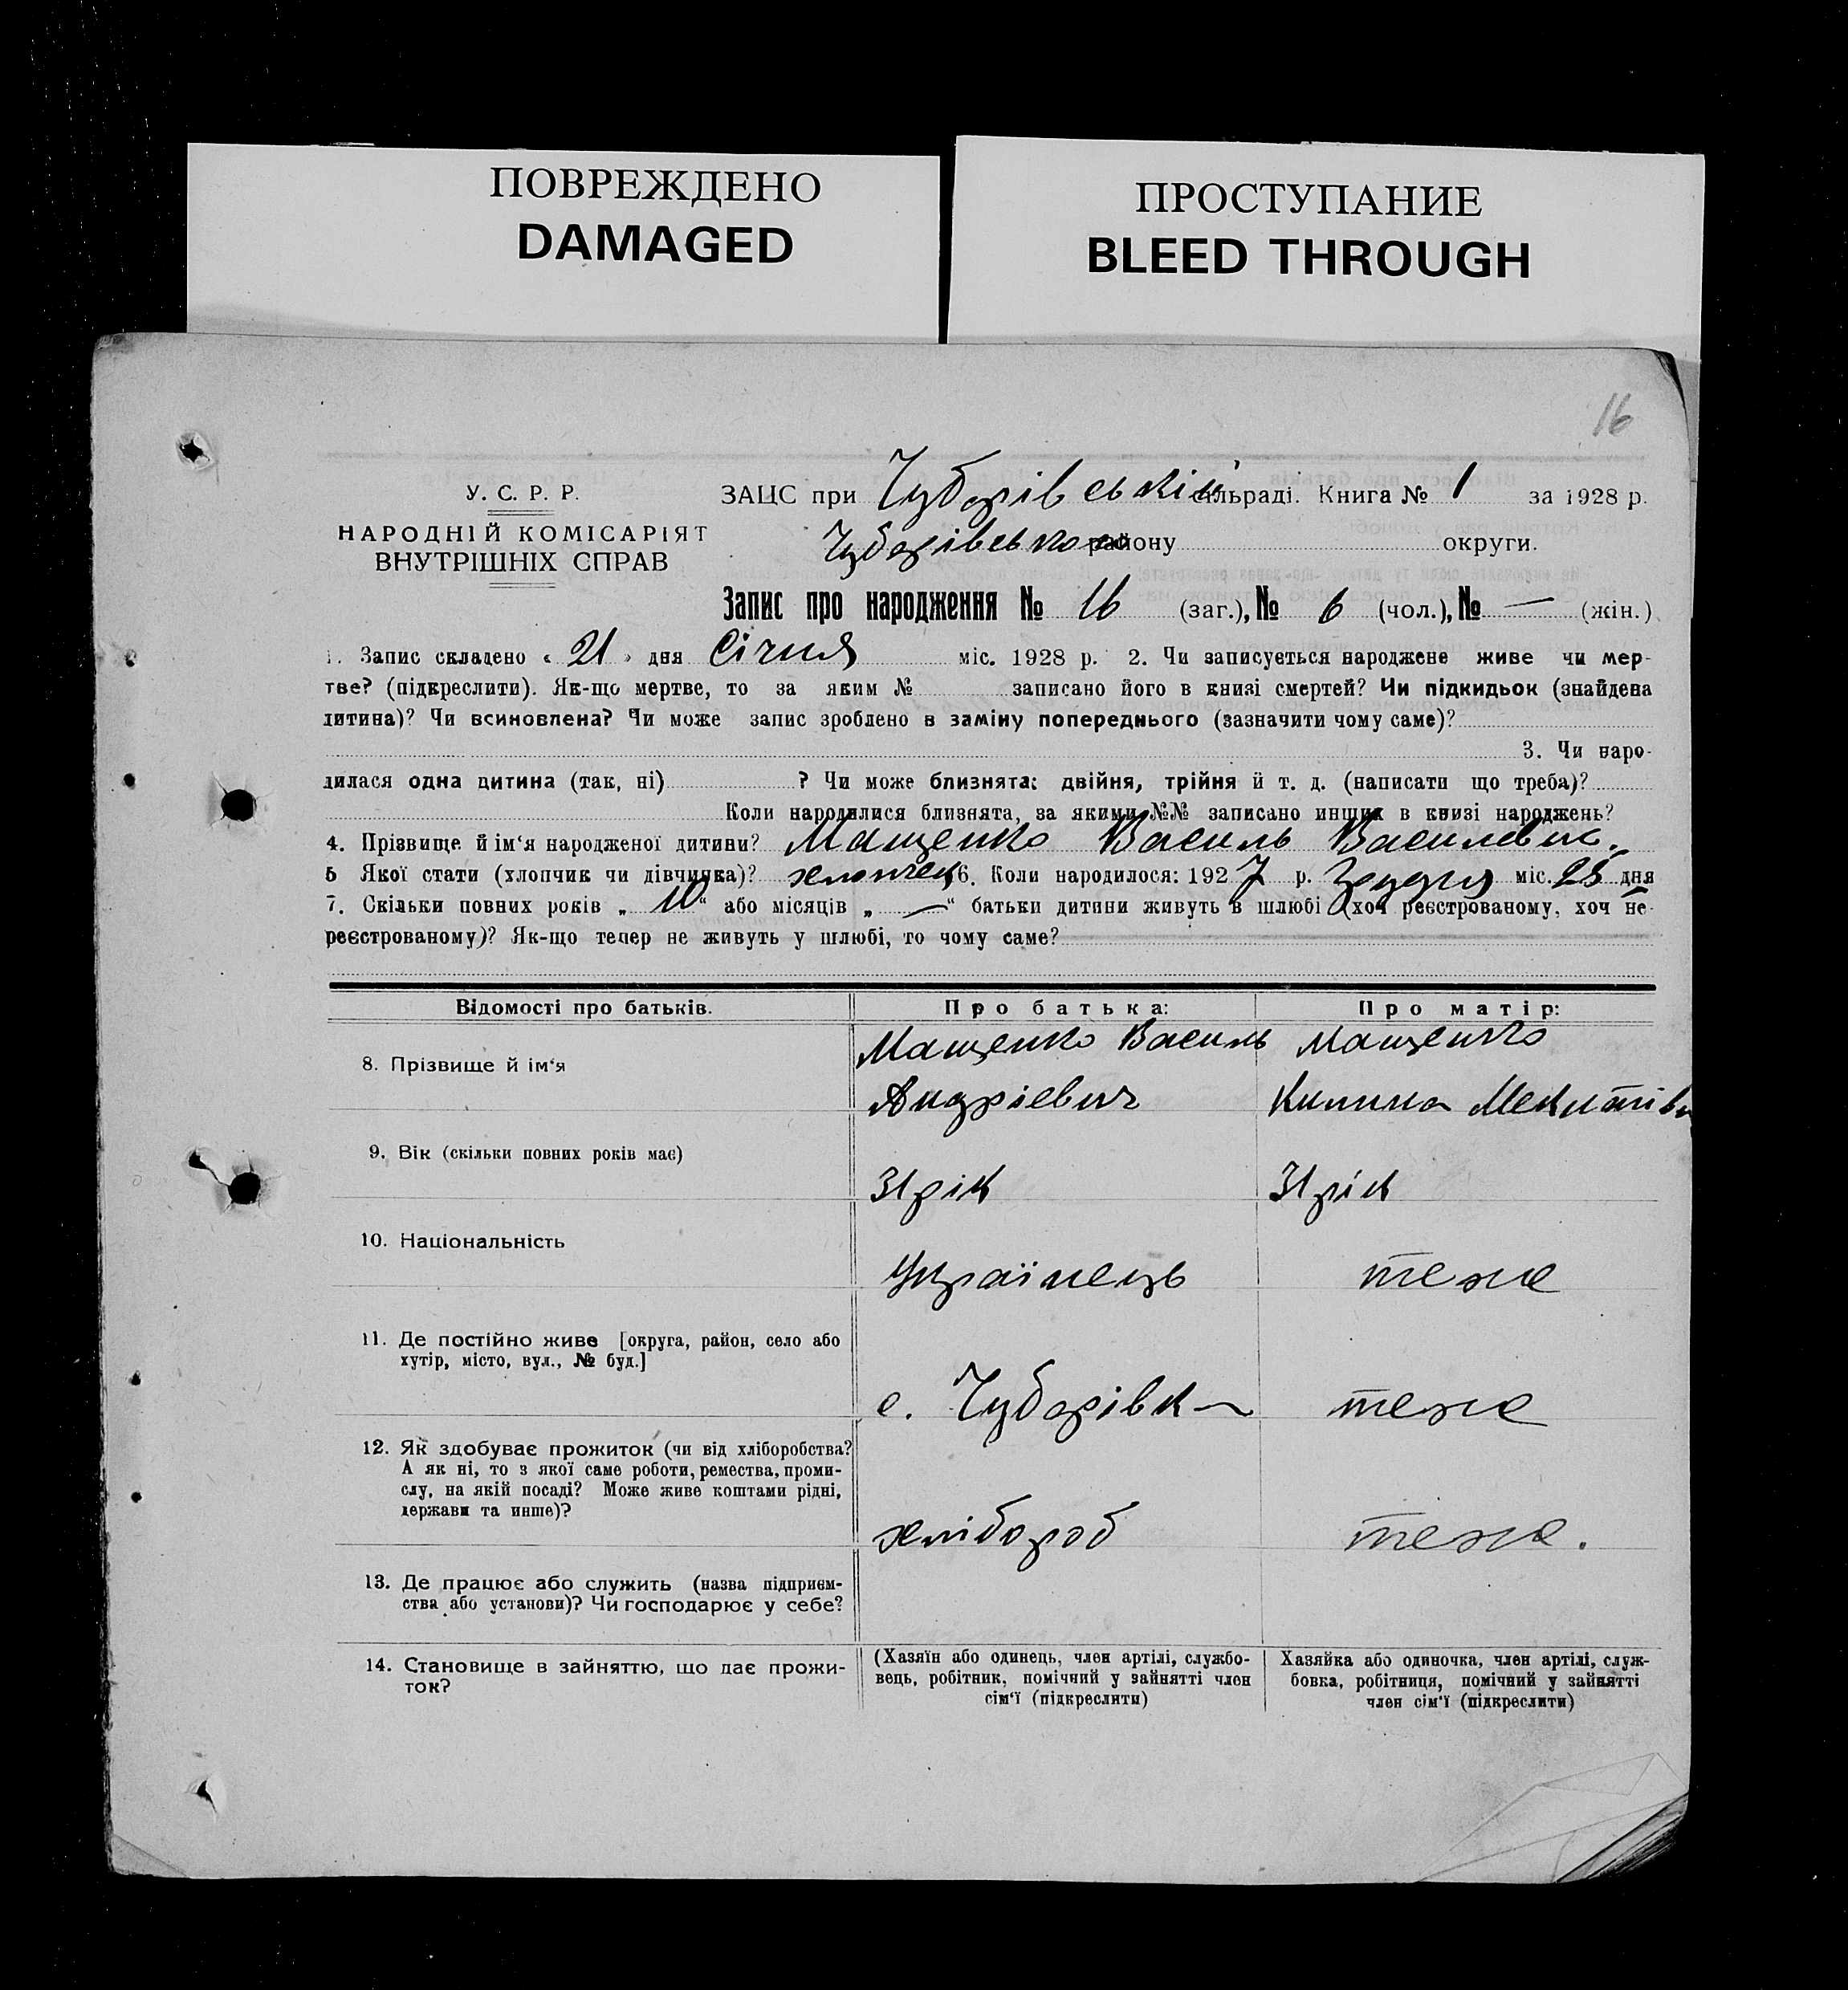 ПОВРЕЖДЕНО
DAMAGED
ПРОСТУПАНИЕ
BLEED THROUGH
16
У. С. Р. Р.
НАРОДНІЙ КОМІСАРІЯТ
ВНУТРІШНІХ СПРАВ
ЗАЦС при Чубарівській сільраді. Книга № 1 за 1928 р.
Чубарівського району округи.
Запис про народження № 16 (заг.), № 6 (чол.), № — (жін.)
1. Запис складено « 21 » дня Січня міс. 1928 р. 2. Чи записується народжене живе чи мер-
тве? (підкреслити). Як-що мертве, то за яким № записано його в книзі смертей? Чи підкидьок (знайдена
дитина)? Чи всиновлена? Чи може запис зроблено в заміну попереднього (зазначити чому саме)?
3. Чи наро-
дилася одна дитина (так, ні) ? Чи може близнята: двійня, трійня й т. д. (написати що треба)?
Коли народилися близнята, за якими №№ записано инших в книзі народжень?
4. Прізвище й ім‘я народженої дитини? Мащенко Василь Василевич.
5 Якої стати (хлопчик чи дівчинка)? хлопчек 6. Коли народилося: 1927 р. Грудня міс. 25 дня
7. Скільки повних років „ 10 “ або місяців „ — “ батьки дитини живуть в шлюбі (хоч реєстрованому, хоч не-
реєстрованому)? Як-що тепер не живуть у шлюбі, то чому саме?
Відомості про батьків. Про батька: Про матір:
8. Прізвище й ім‘я Мащенко Василь Мащенко
Андрієвич Килина
9. Вік (скільки повних років має) 31 рік 31 рік
10. Національність Українець теже
11. Де постійно живе [округа, район, село або
хутір, місто, вул., № буд.]
с. Чубарівка теже
12. Як здобуває прожиток (чи від хліборобства?
А як ні, то з якої саме роботи, ремества, проми-
слу, на якій посаді? Може живе коштами рідні,
держави та инше)?
хлібороб теже.
13. Де працює або служить (назва підприєм-
ства або установи)? Чи господарює у себе?
14. Становище в зайняттю, що дає прожи-
ток?
(Хазяїн або одинець, член артілі, службо-
вець, робітник, помічний у зайнятті член
сім‘ї (підкреслити)
Хазяйка або одиночка, член артілі, служ-
бовка, робітниця, помічний у зайнятті
член сім‘ї (підкреслити)